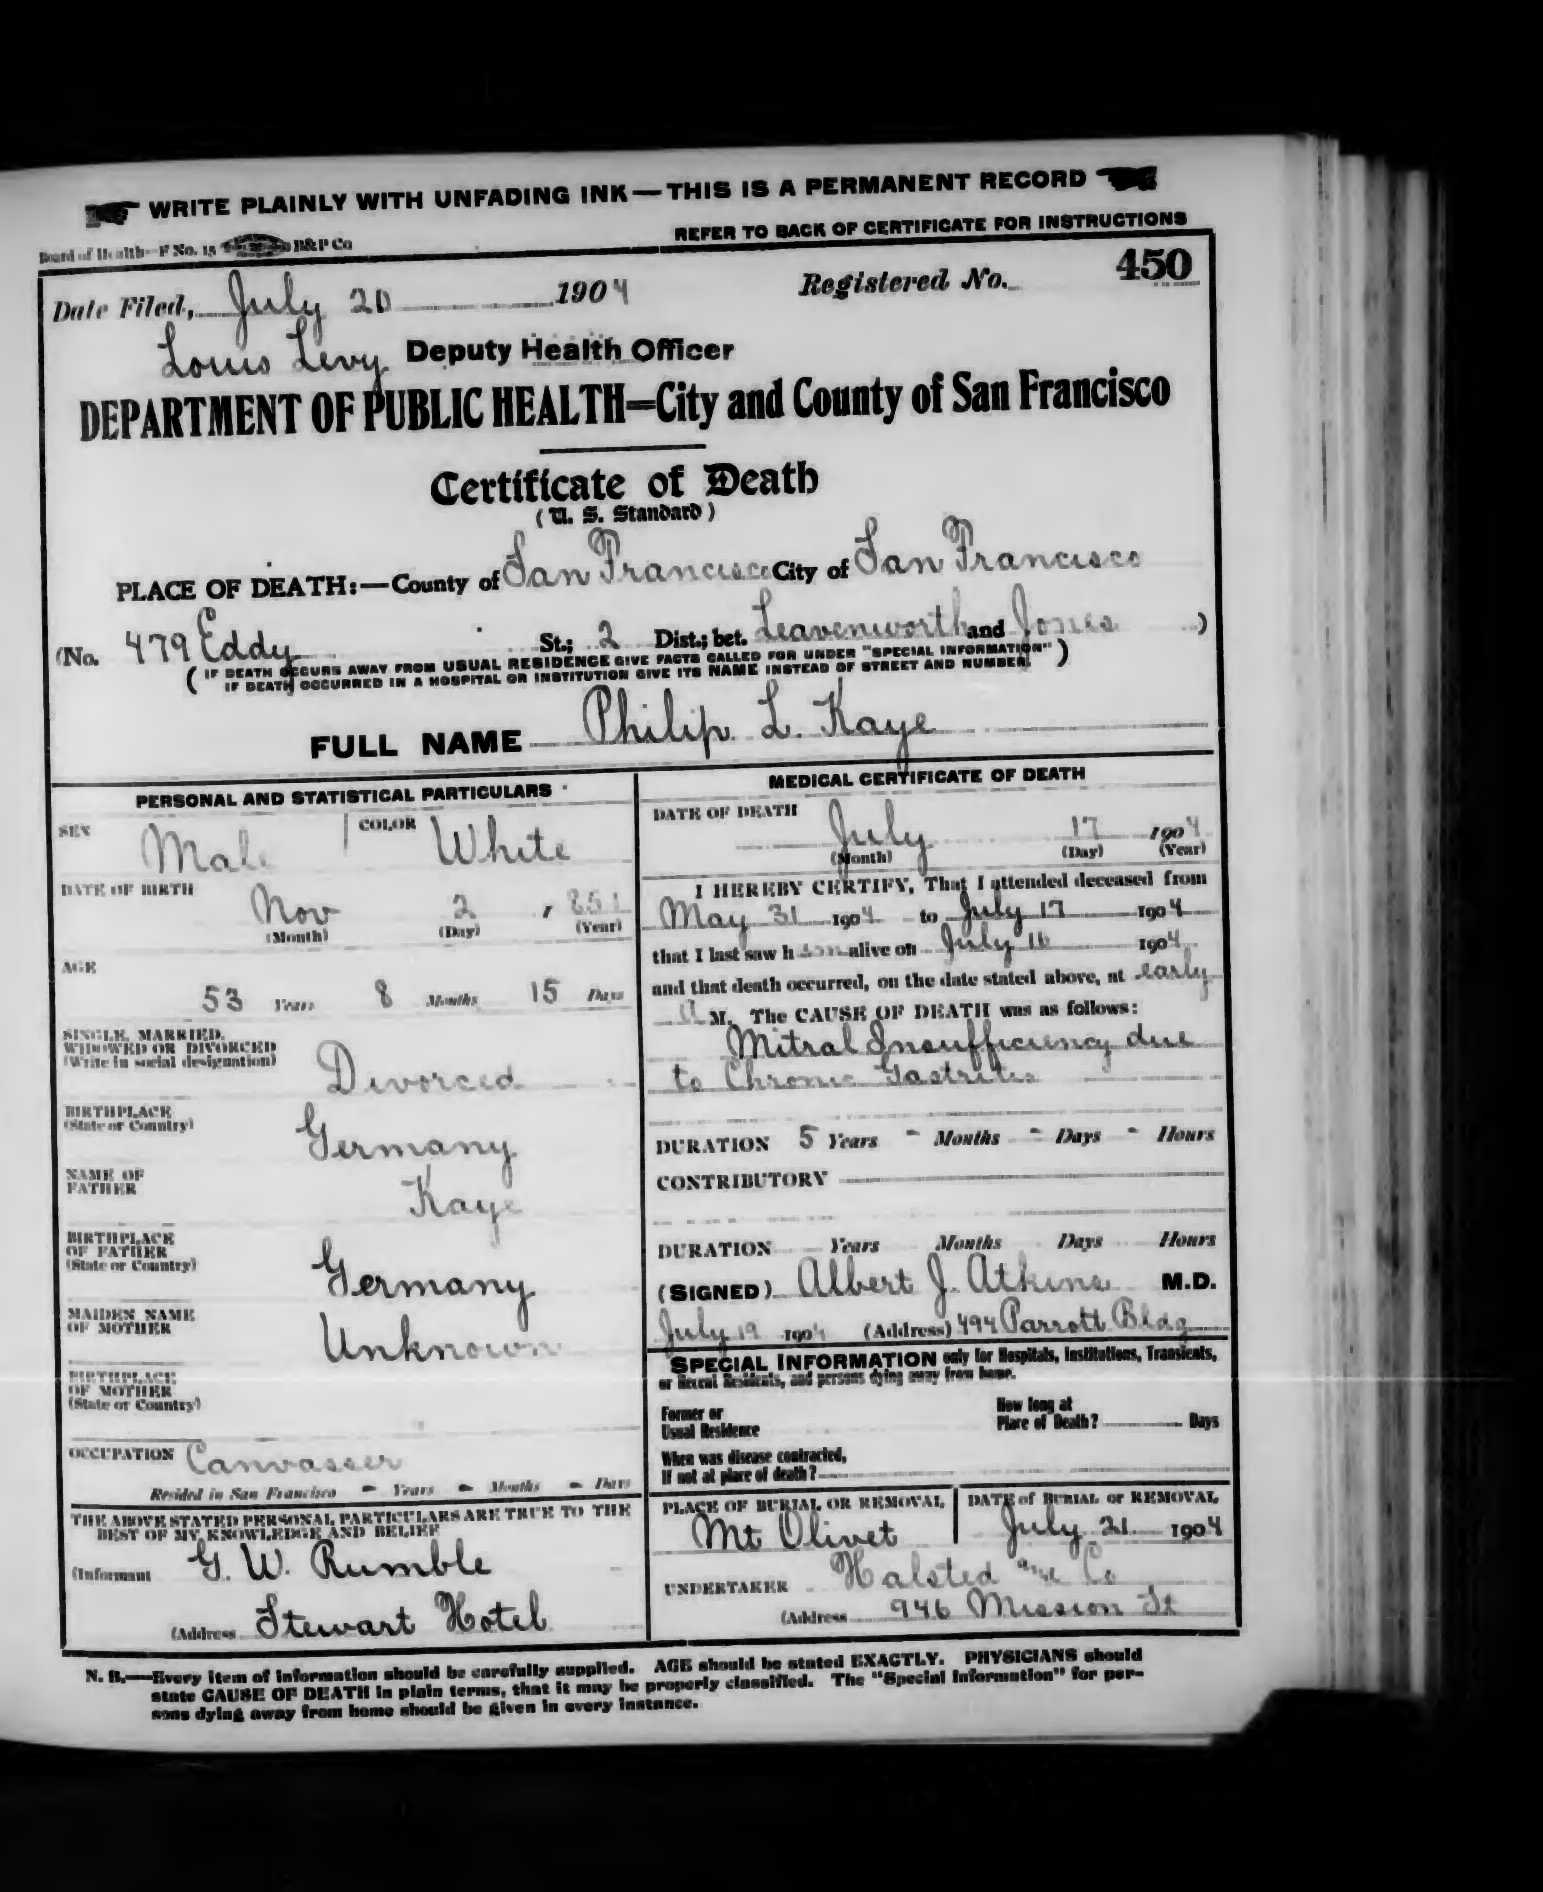 WRITE PLAINLY WITH UNFADING INK—THIS IS A PERMANENT RECORD
Board of Health—F No. 15 B&P Co
REFER TO BACK OF CERTIFICATE FOR INSTRUCTIONS
Date Filed, July 20 1904 Registered No. 450
Louis Levy Deputy Health Officer
DEPARTMENT OF PUBLIC HEALTH=City and County of San Francisco
Certificate of Death
(U. S. Standard)
PLACE OF DEATH:—County of San Francisco City of San Francisco
(No. 479 Eddy St.; 2 Dist.; bet. Leavenworth and Jones )
( IF DEATH OCCURS AWAY FROM USUAL RESIDENCE GIVE FACTS CALLED FOR UNDER "SPECIAL INFORMATION" )
IF DEATH OCCURRED IN A HOSPITAL OR INSTITUTION GIVE ITS NAME INSTEAD OF STREET AND NUMBER.
FULL NAME Philip L. Kaye
PERSONAL AND STATISTICAL PARTICULARS
SEX Male COLOR White
DATE OF BIRTH
Nov 2 , 851
(Month) (Day) (Year)
AGE
53 Years 8 Months 15 Days
SINGLE, MARRIED,
WIDOWED OR DIVORCED
(Write in social designation) Divorced
BIRTHPLACE
(State or Country) Germany
NAME OF
FATHER Kaye
BIRTHPLACE
OF FATHER
(State or Country) Germany
MAIDEN NAME
OF MOTHER Unknown
BIRTHPLACE
OF MOTHER
(State or Country)
OCCUPATION Canvasser
Resided in San Francisco - Years - Months - Days
THE ABOVE STATED PERSONAL PARTICULARS ARE TRUE TO THE
BEST OF MY KNOWLEDGE AND BELIEF
(Informant G. W. Rumble
(Address Stewart Hotel
MEDICAL CERTIFICATE OF DEATH
DATE OF DEATH
July 17 1904
(Month) (Day) (Year)
I HEREBY CERTIFY, That I attended deceased from
May 31 1904 to July 17 1904
that I last saw h im alive on July 16 1904
and that death occurred, on the date stated above, at early
A M. The CAUSE OF DEATH was as follows:
Mitral Insufficiency due
to Chronic Gastritis
DURATION 5 Years - Months - Days - Hours
CONTRIBUTORY
DURATION Years Months Days Hours
(SIGNED) Albert J. Atkins M.D.
July 19 1904 (Address) 494 Parrott Bldg
SPECIAL INFORMATION only for Hospitals, Institutions, Transients,
or Recent Residents, and persons dying away from home.
Former or
Usual Residence
How long at
Place of Death? Days
When was disease contracted,
If not at place of death?
PLACE OF BURIAL OR REMOVAL
Mt Olivet
DATE of BURIAL or REMOVAL
July 21 1904
UNDERTAKER Halsted and Co
(Address 946 Mission St
N. B.—Every item of information should be carefully supplied. AGE should be stated EXACTLY. PHYSICIANS should
state CAUSE OF DEATH in plain terms, that it may be properly classified. The "Special Information" for per-
sons dying away from home should be given in every instance.